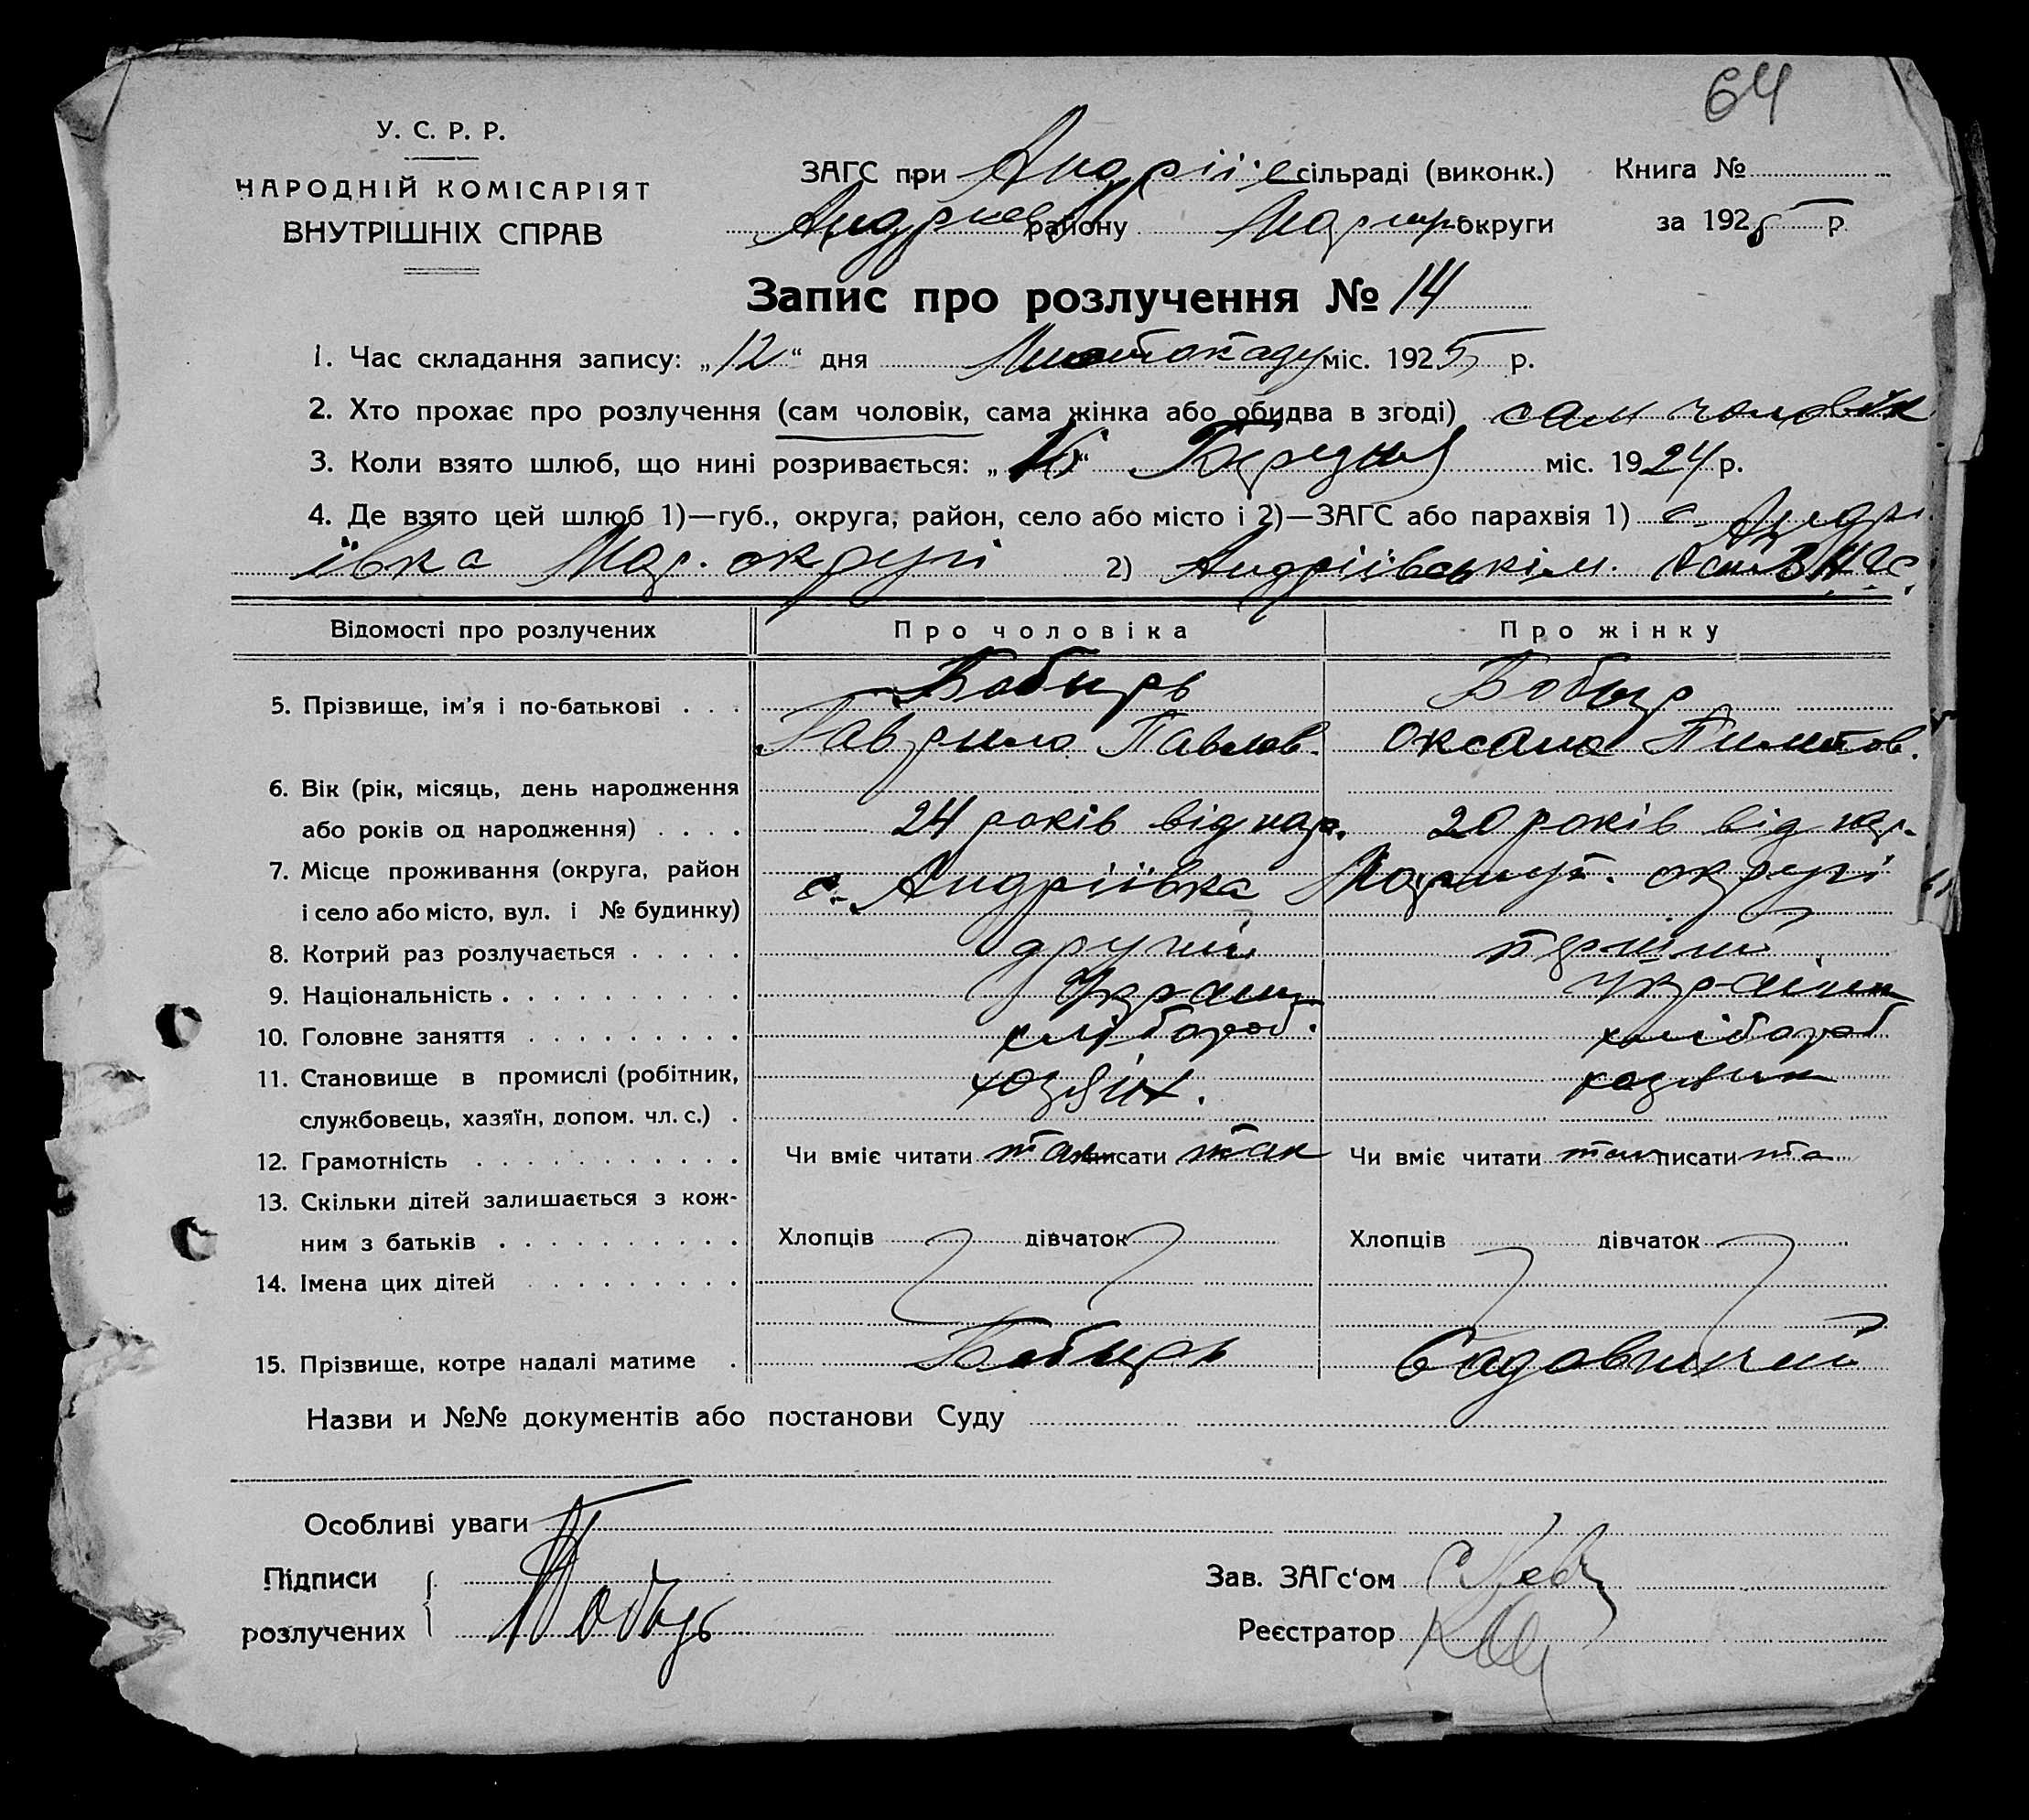 64
У. С. Р. Р.
НАРОДНІЙ КОМІСАРІЯТ
ВНУТРІШНІХ СПРАВ
ЗАГС при Андріїв сільраді (виконк.)
Андріїв району Маріуп округи
Книга №
за 1925 р
Запис про розлучення № 14
1. Час складання запису: „12“ дня Листопаду міс. 1925 р.
2. Хто прохає про розлучення (сам чоловік, сама жінка або обидва в згоді) сам чоловік
3. Коли взято шлюб, що нині розривається: „ “ міс. 1924 р.
4. Де взято цей шлюб 1)—губ., округа, район, село або місто і 2)—ЗАГС або парахвія 1) с. Андрі
ївка Мар. округи 2) Андріївськім.
Відомості про розлучених Про чоловіка Про жінку
5. Прізвище, ім'я і по-батькові . . . Бобирь Бобир
Гаврило Павлов. Оксана
6. Вік (рік, місяць, день народження
або років од народження) . . . . 24 років від нар. 20 років від нар.
7. Місце проживання (округа, район
і село або місто, вул. і № будинку) с. Андріївка Маріуп. округи
8. Котрий раз розлучається . . . . . другий перший
9. Національність . . . . . . . . . . Украин Украінк
10. Головне заняття . . . . . . . . . хлібороб. хлібороб
11. Становище в промислі (робітник,
службовець, хазяїн, допом. чл. с.) . хозяін.
12. Грамотність . . . . . . . . . . . Чи вміє читати так писати так Чи вміє читати так писати та
13. Скільки дітей залишається з кож-
ним з батьків . . . . . . . . . . Хлопців дівчаток Хлопців дівчаток
14. Імена цих дітей . . . . . . . . .
15. Прізвище, котре надалі матиме . Бобирь Садовничий
Назви и №№ документів або постанови Суду
Особливі уваги
Підписи
розлучених Бобирь
Зав. ЗАГс‘ом
Реєстратор